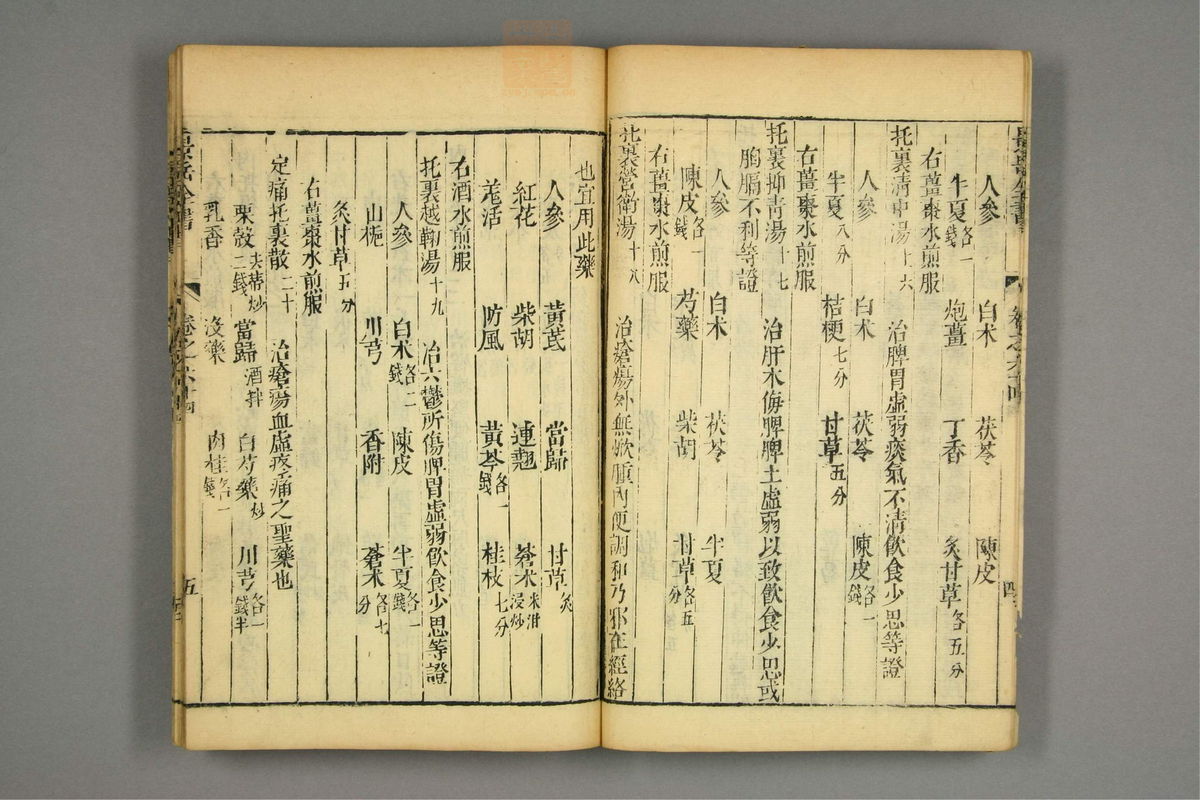 人參 白术 茯苓 陳皮
半夏各一錢 炮薑 丁香 炙甘草各五分
右薑棗水煎服
托裏清中湯十六 治脾胃虛弱痰氣不清飲食少思等證
人參 白术 茯苓 陳皮各一錢
半夏八分 桔梗七分 甘草五分
右薑棗水煎服
托裏抑青湯十七 治肝木侮脾脾土虛弱以致飲食少思或
胸膈不利等證
人參 白术 茯苓 半夏
陳皮各一錢 芍藥 柴胡 甘草各五分
右薑棗水煎服
托裏營衛湯十八 治瘡瘍外無焮腫內便調和乃邪在經絡
也宜用此藥
人參 黃芪 當歸 甘草炙
紅花 柴胡 連翹 蒼术米泔浸炒
羌活 防風 黃芩各一錢 桂枝七分
右酒水煎服
托裏越鞠湯十九 治六鬱所傷脾胃虛弱飲食少思等證
人參 白术各二錢 陳皮 半夏各一錢
山梔 川芎 香附 蒼术各七分
炙甘草五分
右薑棗水煎服
定痛托裏散二十 治瘡瘍血虛疼痛之聖藥也
粟殼去蒂炒二錢 當歸酒拌 白芍藥炒 川芎各一錢半
乳香 沒藥 肉桂各一錢
景岳全書
卷之六十四
五